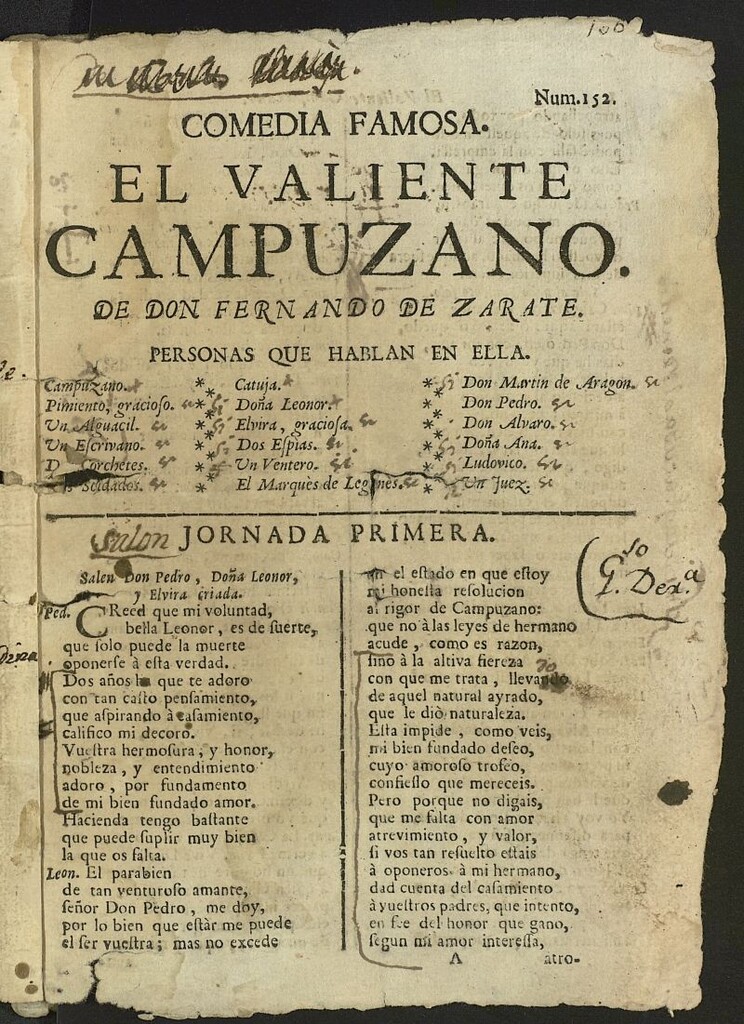 Num. 152.
COMEDIA FAMOSA.
EL VALIENTE
CAMPUZANO.
DE DON FERNANDO DE ZARATE.
PERSONAS QUE HABLAN EN ELLA.
Campuzano.
Pimiento, gracioso.
Un Alguacil.
Un Escrivano.
Corchetes.
Soldados.
Catuja.
Doña Leonor.
Elvira, graciosa.
Dos Espias.
Un Ventero.
El Marques de Leganes.
Don Martin de Aragon.
Don Pedro.
Don Alvaro.
Doña Ana.
Ludovico.
Un Juez.
salon JORNADA PRIMERA.
Salen Don Pedro, Doña Leonor,
y Elvira criada.
Ped. CReed que mi voluntad,
bella Leonor, es de suerte,
que solo puede la muerte
oponerse à esta verdad.
Dos años ha que te adoro
con tan casto pensamiento,
que aspirando à casamiento,
califico mi decoro.
Vuestra hermosura, y honor,
nobleza, y entendimiento
adoro, por fundamento
de mi bien fundado amor.
Hacienda tengo bastante
que puede suplir muy bien
la que os falta.
Leon. El parabien
de tan venturoso amante,
señor Don Pedro, me doy,
por lo bien que estàr me puede
el ser vuestra; mas no excede
el estado en que estoy
mi honesta resolucion
al rigor de Campuzano:
que no à las leyes de hermano
acude, como es razon,
sino à la altiva fiereza
con que me trata, llevando
de aquel natural ayrado,
que le diò naturaleza.
Esta impide, como veis,
mi bien fundado deseo,
cuyo amoroso trofeo,
confiesso que mereceis.
Pero porque no digais,
que me falta con amor
atrevimiento, y valor,
si vos tan resuelto estais
à oponeros à mi hermano,
dad cuenta del casamiento
à vuestros padres, que intento,
en fee del honor que gano,
segun mi amor interessa,
A
atro-